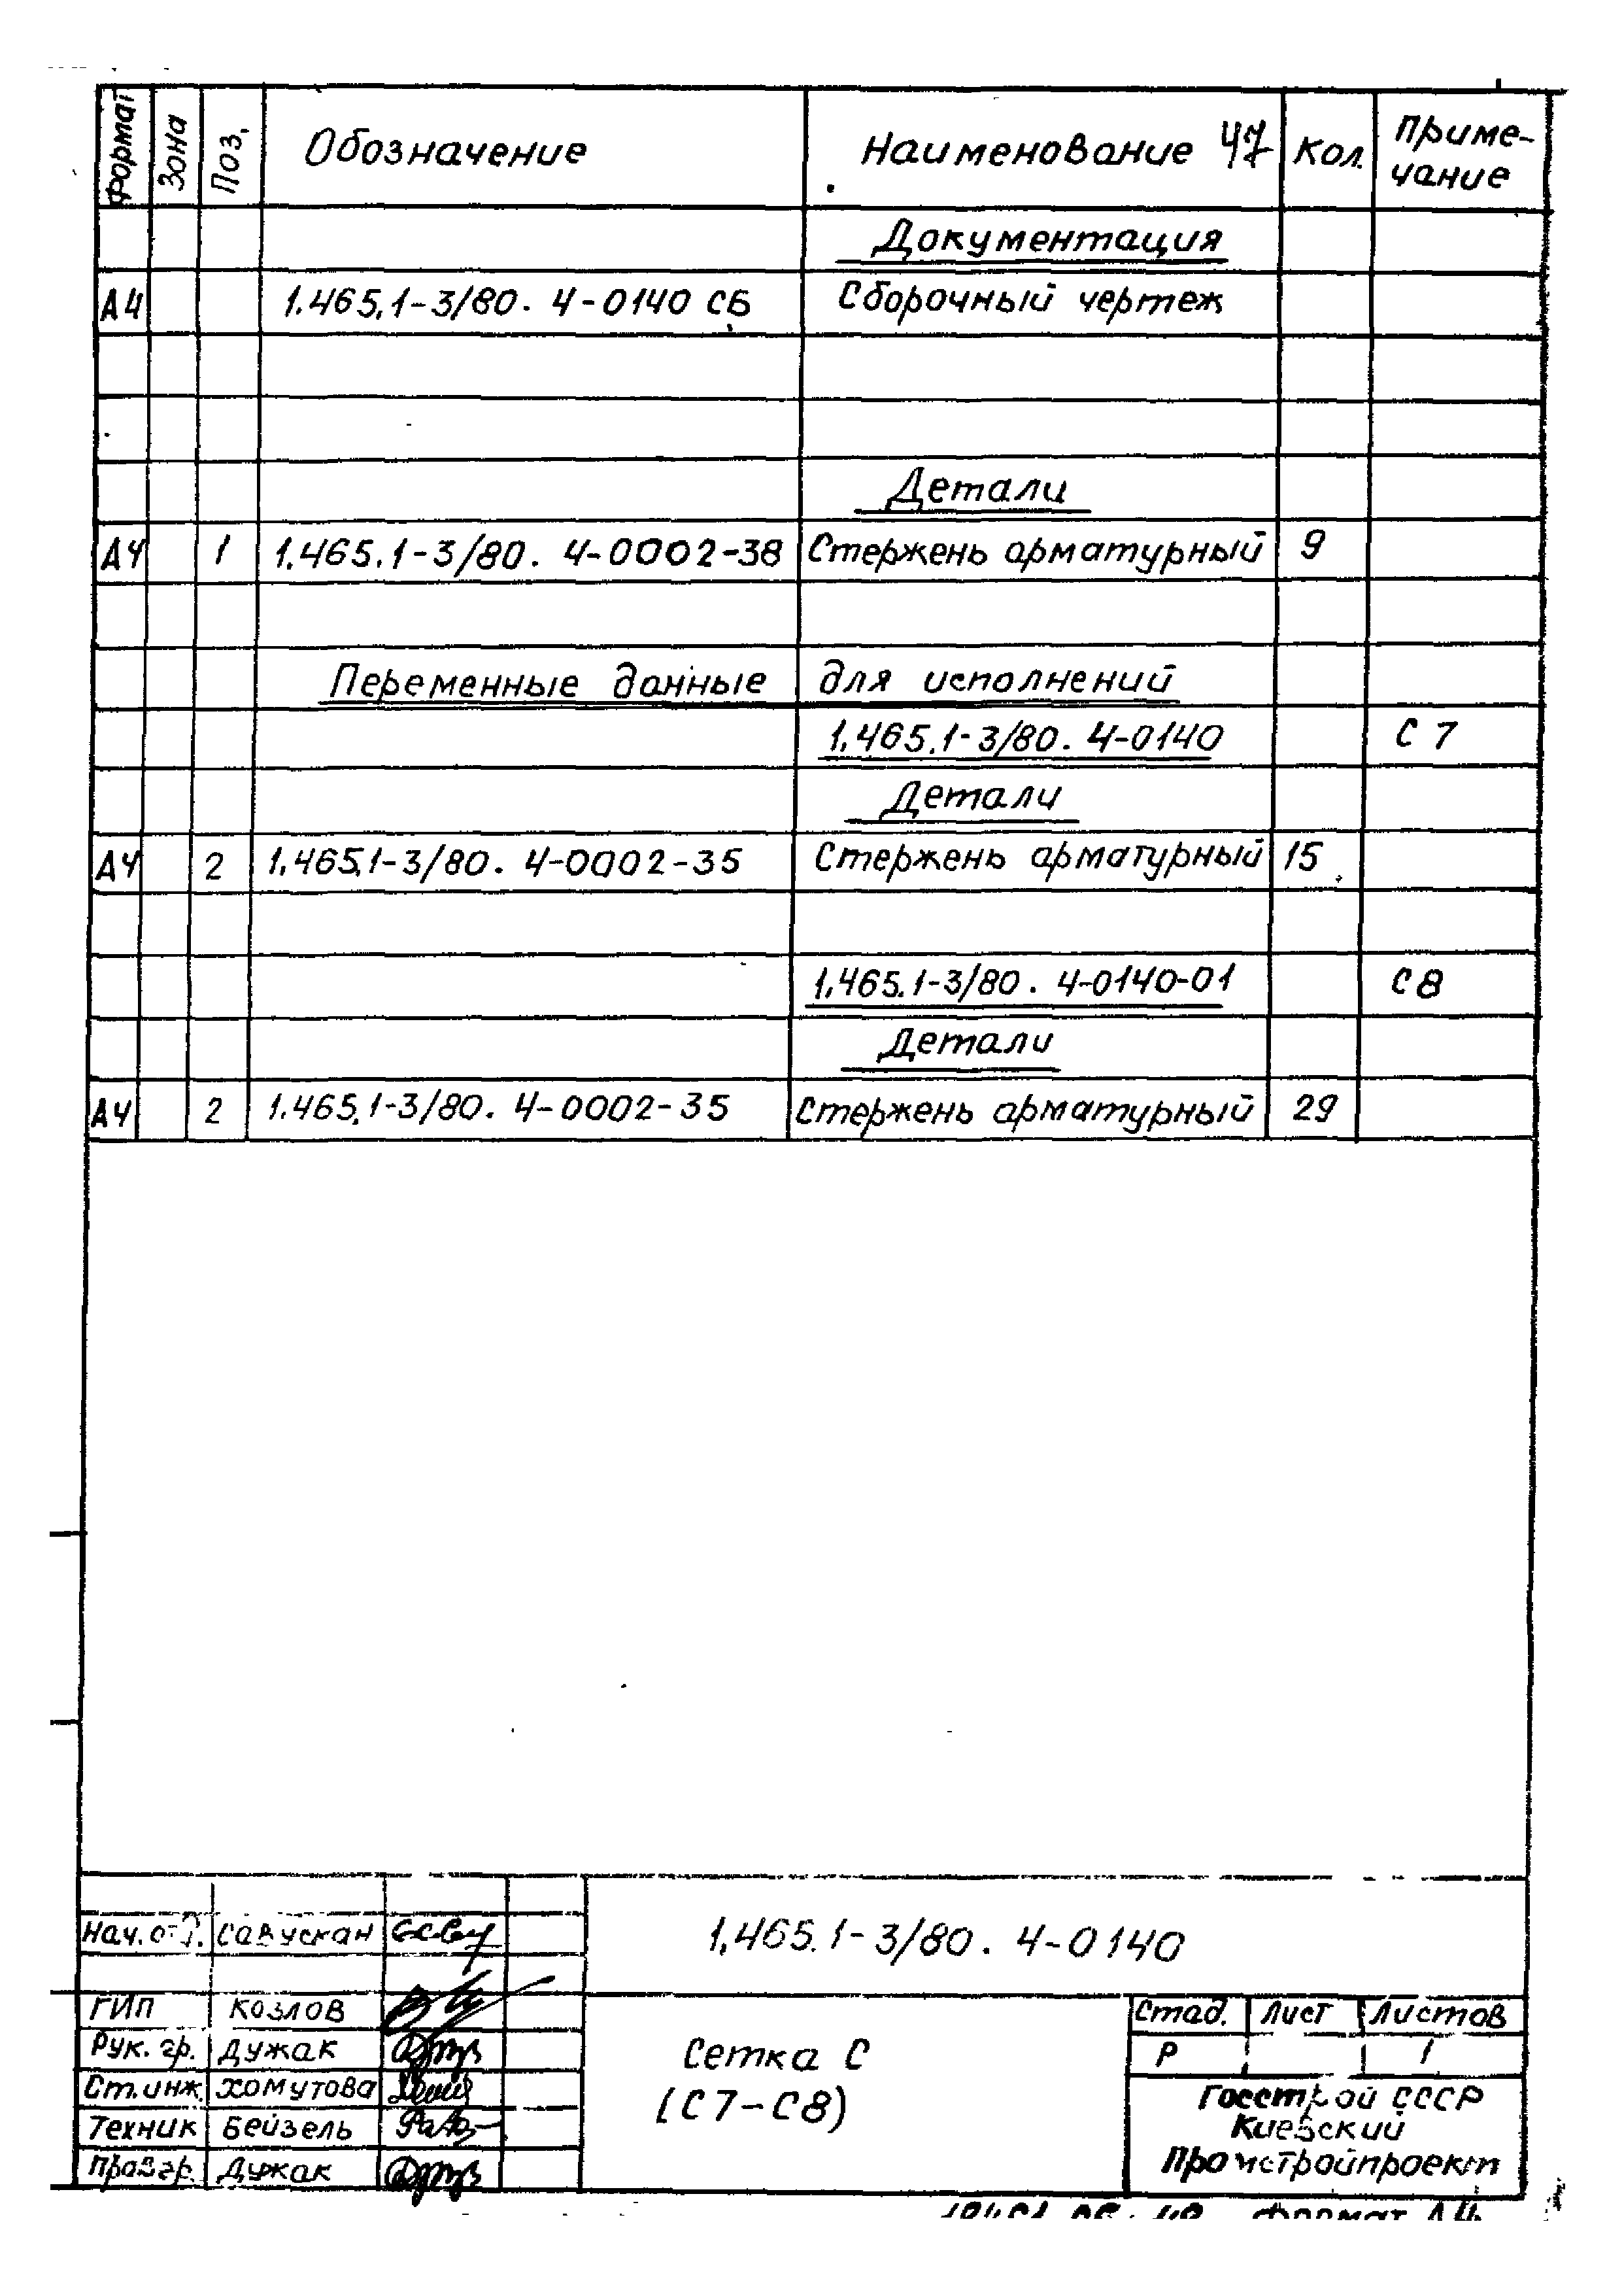 Формат Зона Поз. Обозначение Наименование 47 Кол. Приме-
чание
Документация
А4 1.465.1-3/80. 4-0140 СБ Сборочный чертеж
Детали
А4 1 1.465.1-3/80. 4-0002-38 Стержень арматурный 9
Переменные данные для исполнений
1.465.1-3/80. 4-0140 С 7
Детали
А4 2 1.465.1-3/80. 4-0002-35 Стержень арматурный 15
1.465.1-3/80. 4-0140-01 С 8
Детали
А4 2 1.465.1-3/80. 4-0002-35 Стержень арматурный 29
Нач. отд. Савускан
1.465.1-3/80. 4-0140
ГИП Козлов
Рук. гр. Дужак
Ст. инж. Хомутова
Техник Бейзель
Пров. гр. Дужак
Сетка С
(С7-С8)
Стад. Лист Листов
Р 1
Госстрой СССР
Киевский
Промстройпроект
Формат А4